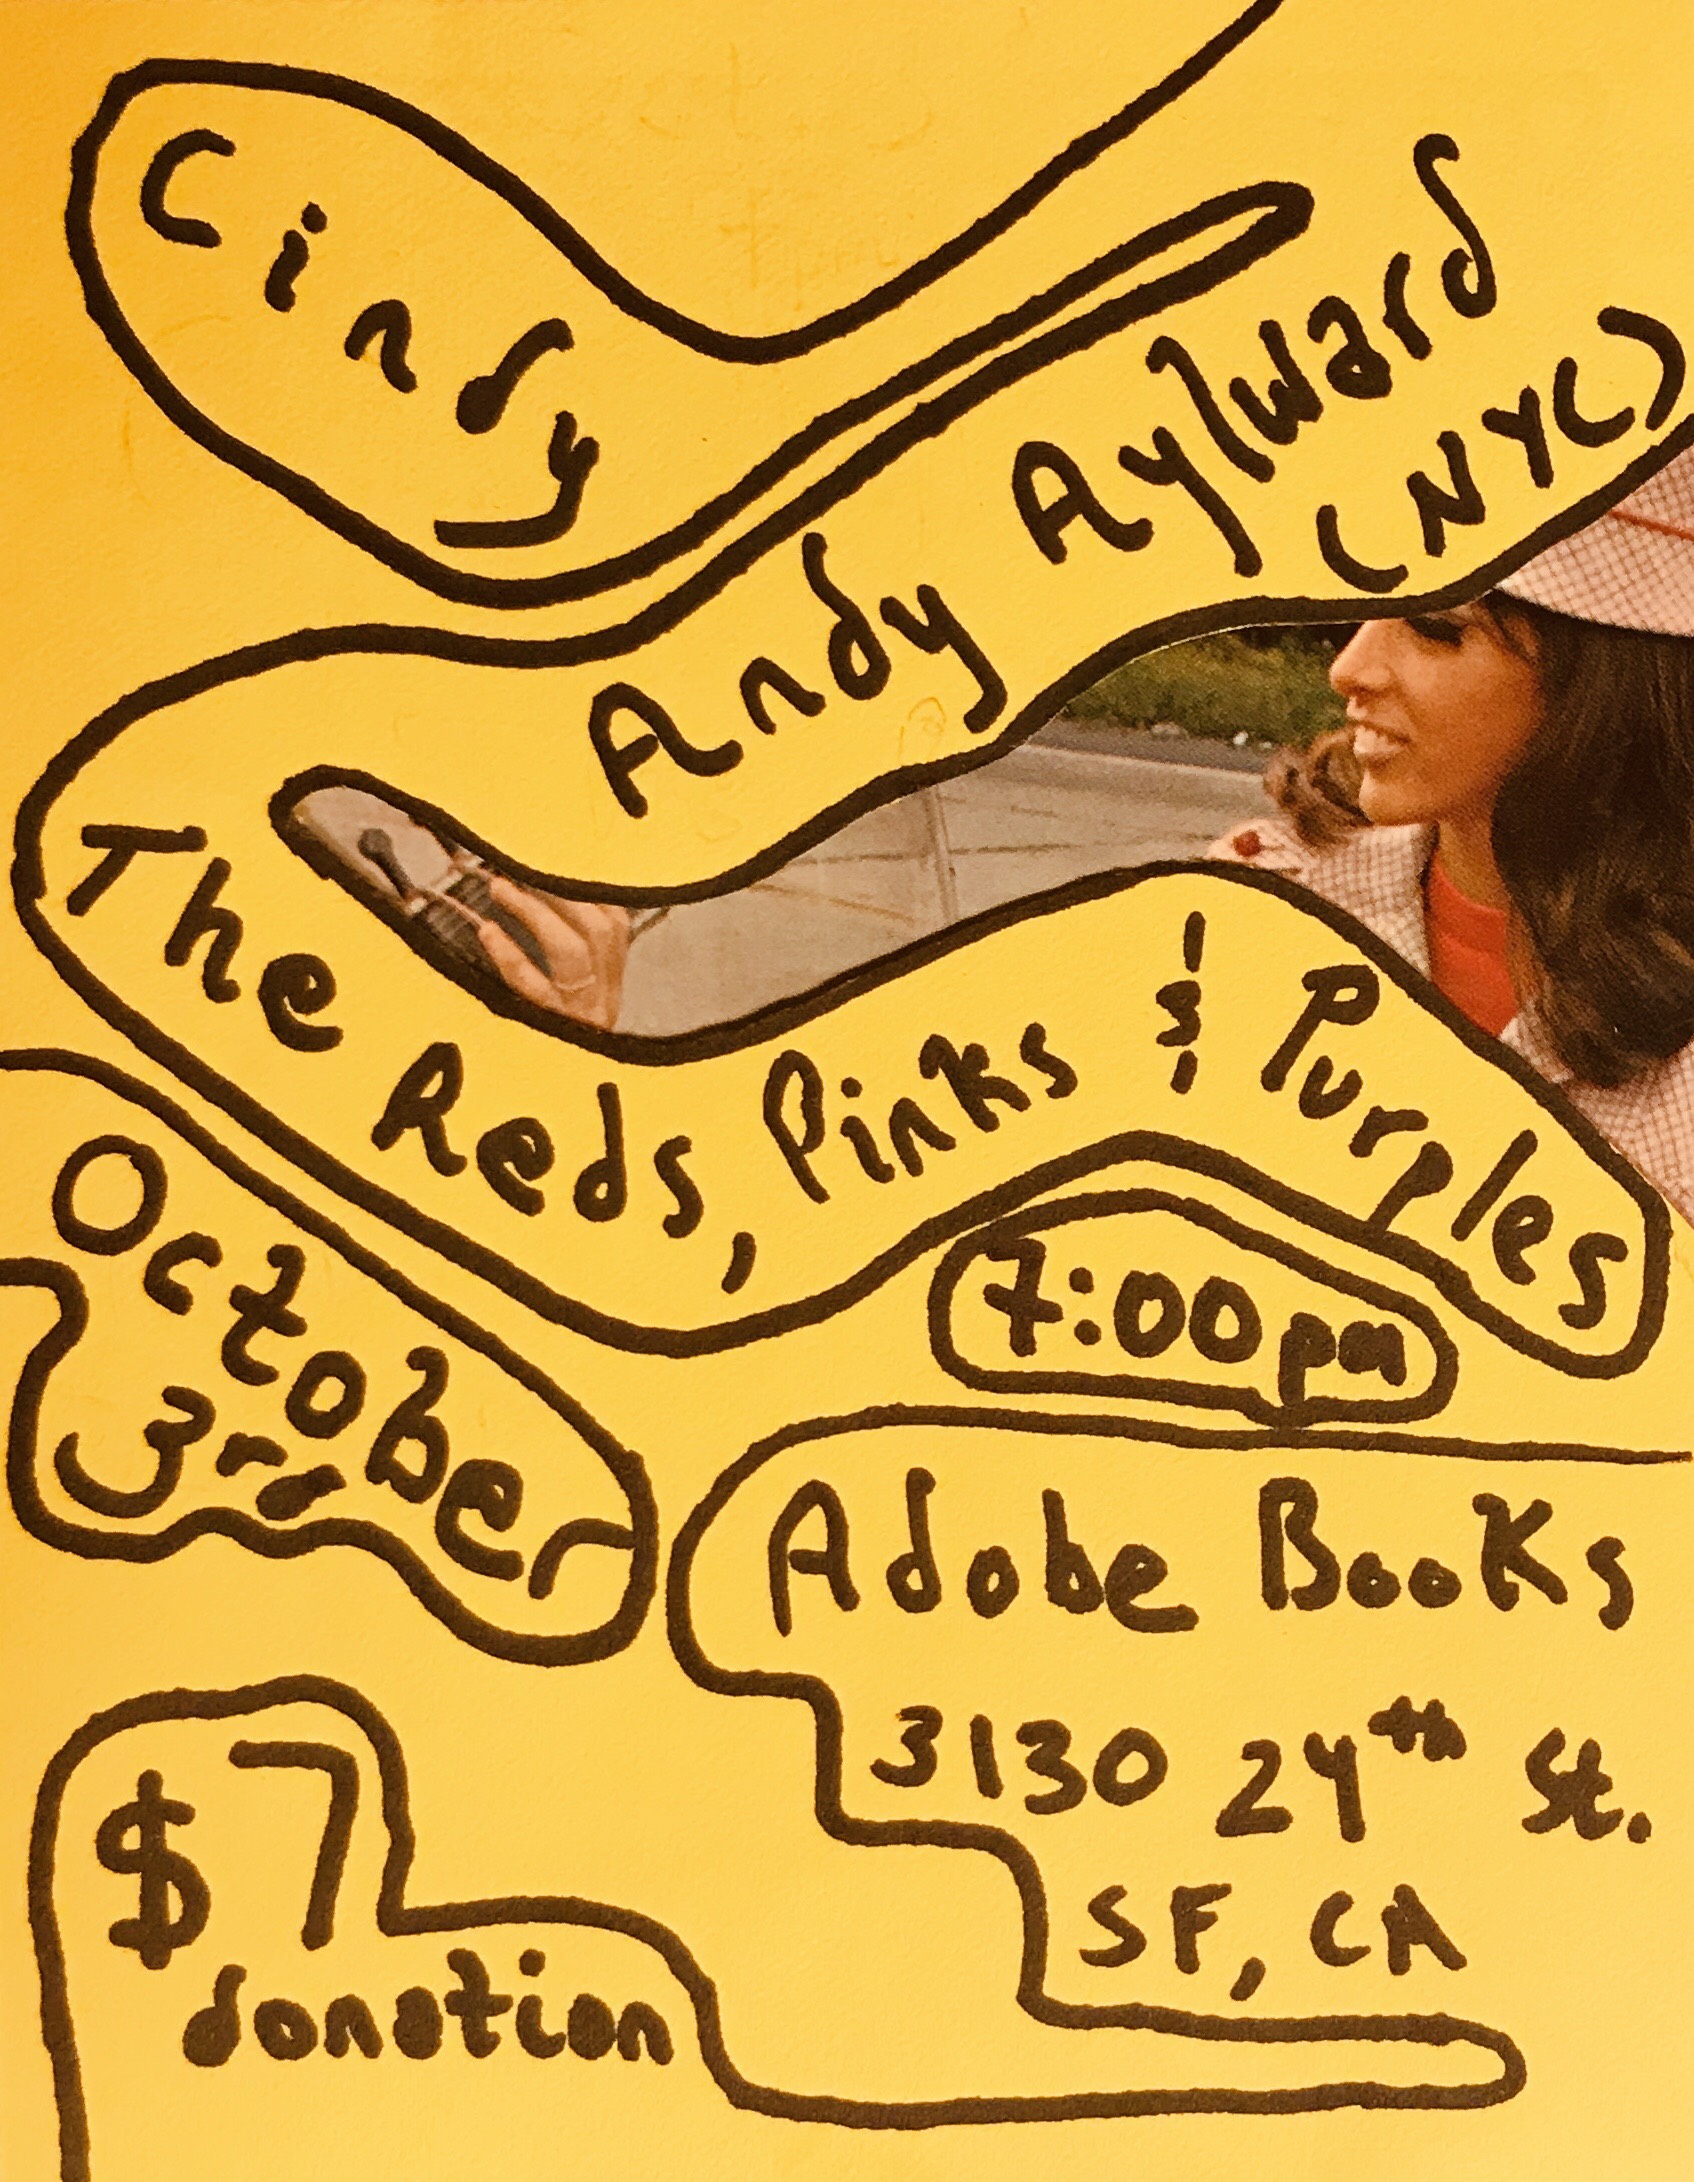 Cindy
Andy Aylward
(NYC)
The Reds, Pinks & Purples
October
3rd
7:00pm
Adobe Books
3130 24th St.
SF, CA
$7
donation